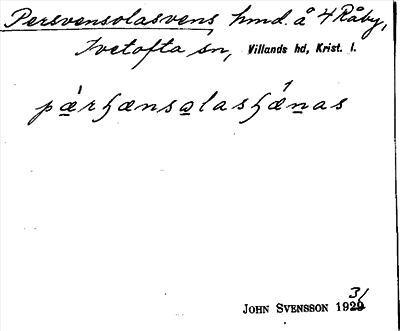 Persvensolasvens hmd. å 4 Råby,
Ivetofta sn, Villands hd, Krist. l.
pæ̀rʒænsalasʒǽnas
31
JOHN SVENSSON 1929